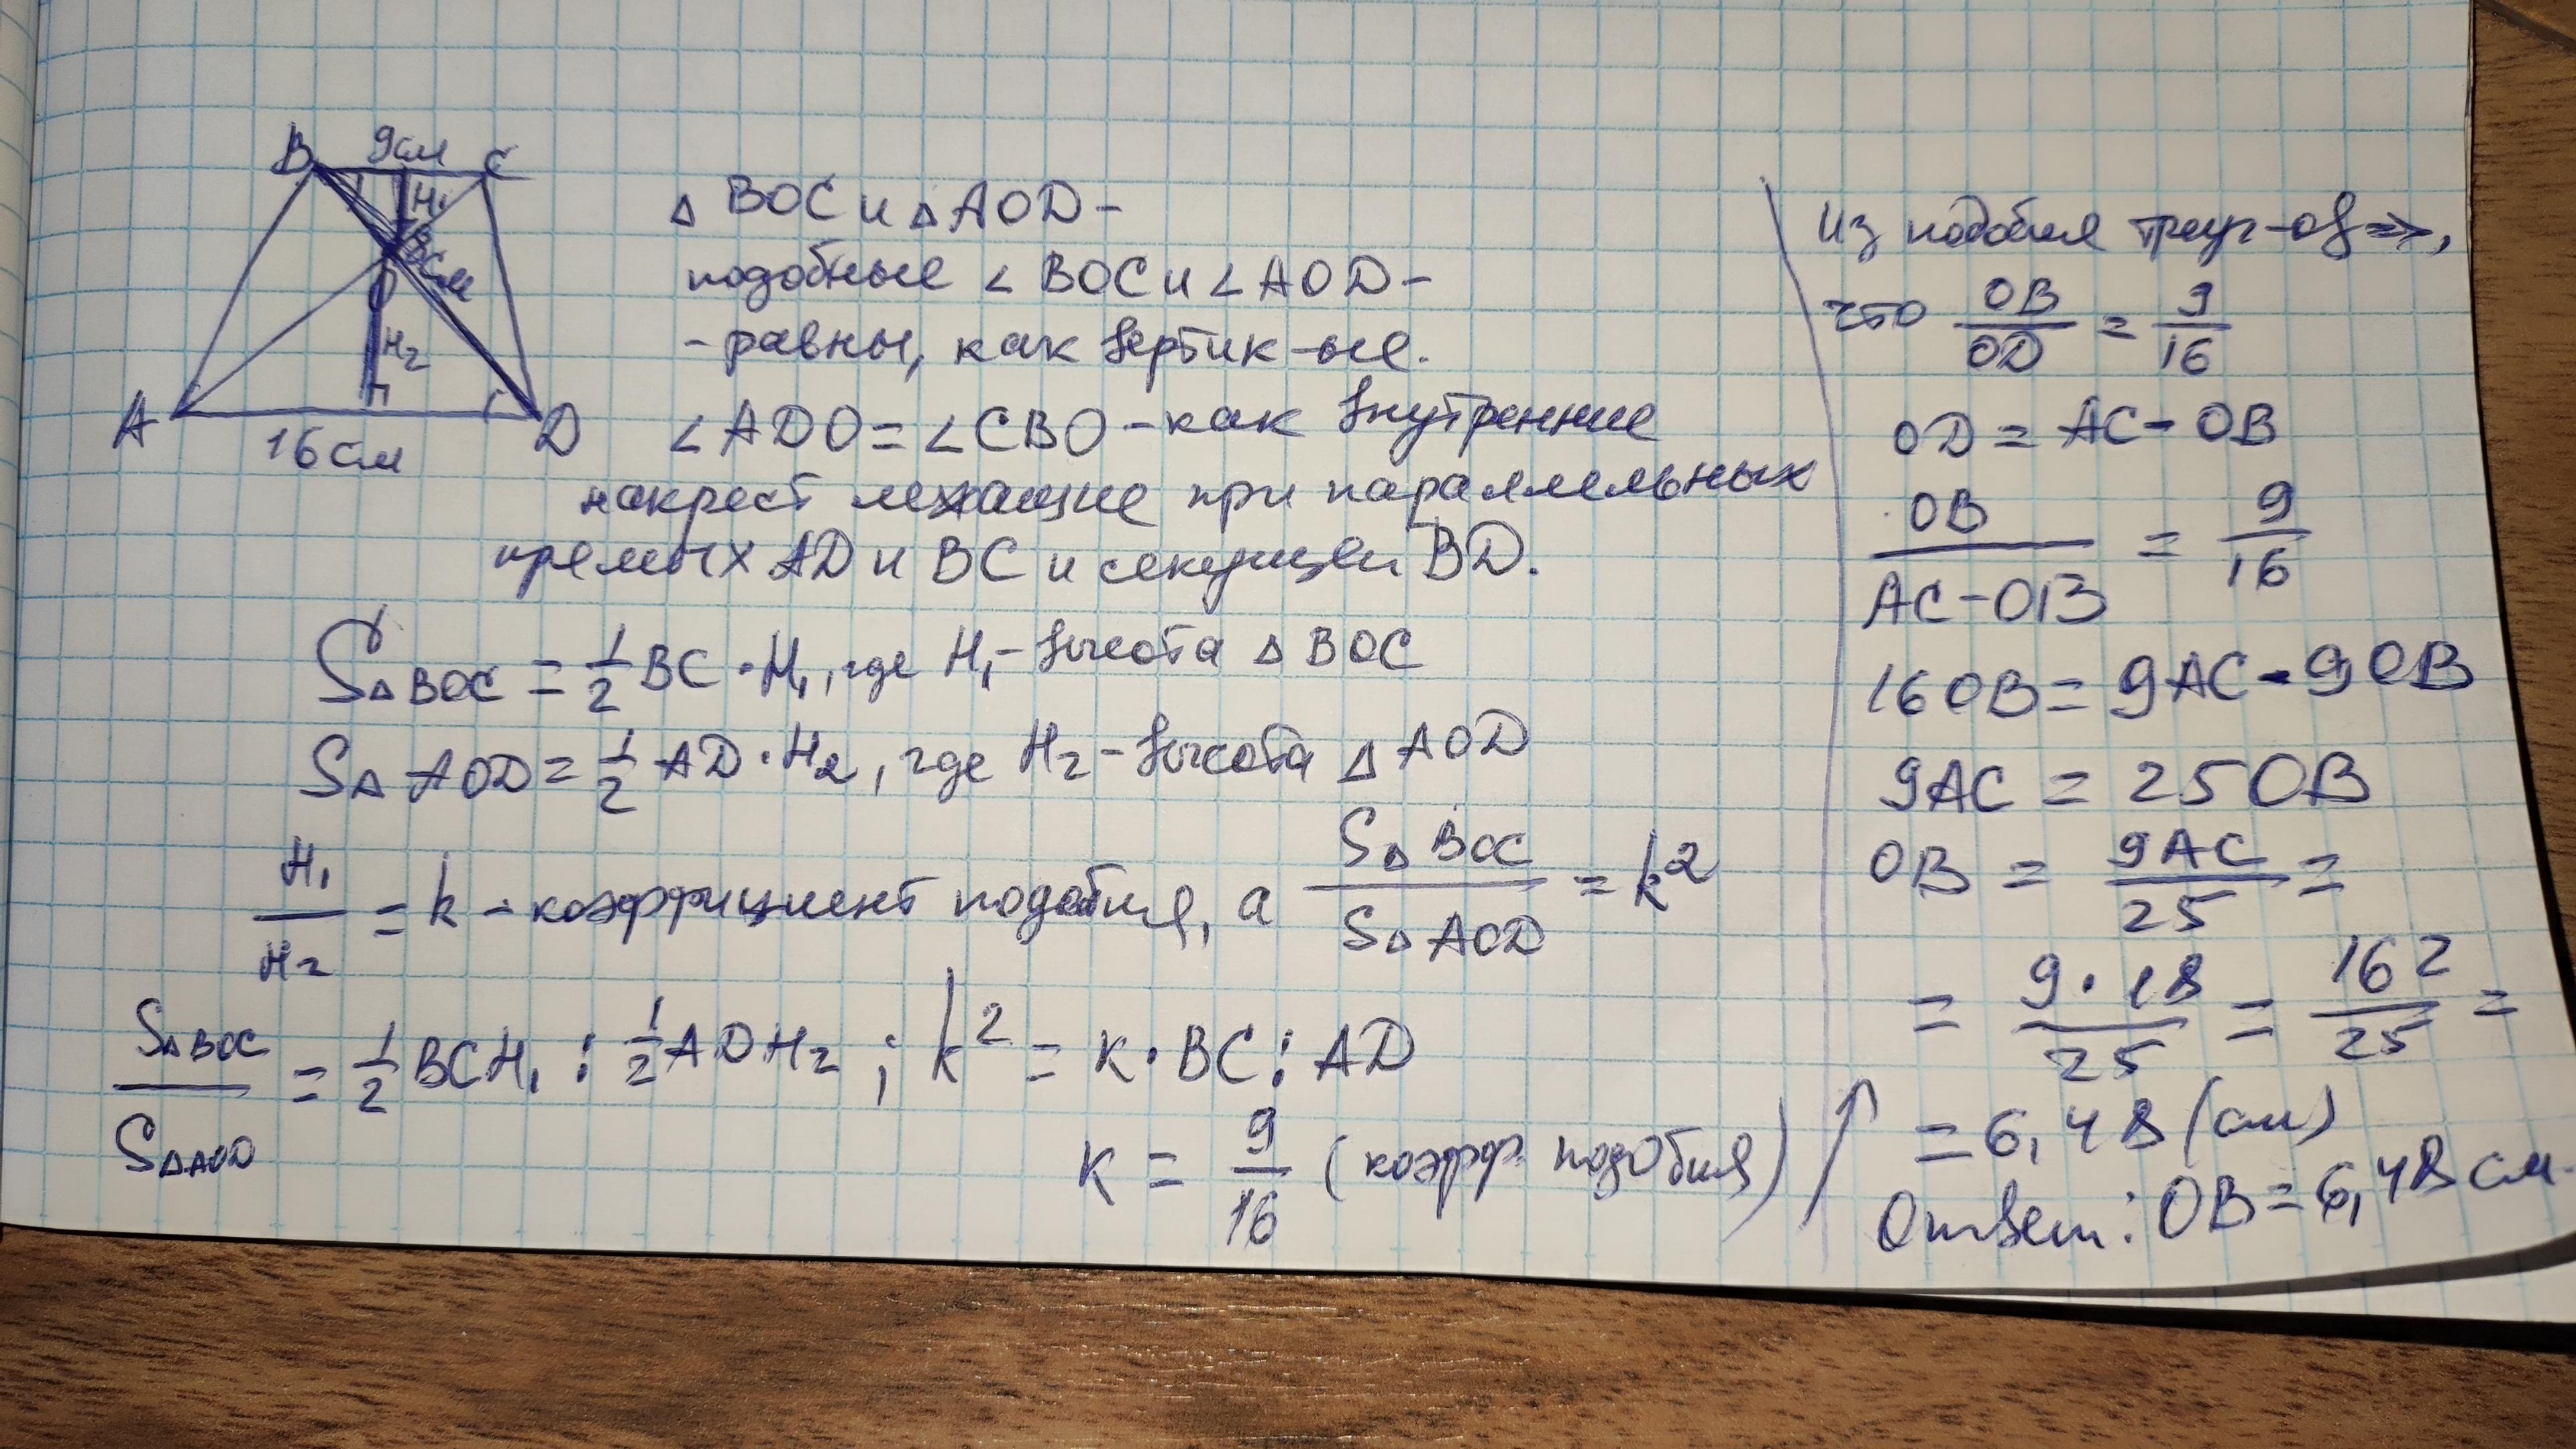 B 9см C
H₁
O
H₂
A 16см D
△ BOC и △ AOD -
подобные ∠ BOC и ∠ AOD -
- равны, как вертик-ые.
∠ ADO = ∠ CBO - как внутренние
накрест лежащие при параллельных
прямых AD и BC и секущей BD.
S△BOC = 1/2 BC · H₁, где H₁ - высота △ BOC
S△ AOD = 1/2 AD · H₂, где H₂ - высота △ AOD
H₁/H₂ = k - коэффициент подобия, а S△ BOC / S△ AOD = k²
S△BOC / S△AOD = 1/2 BCH₁ : 1/2 ADH₂ ; k² = k · BC : AD
k = 9/16 (коэфф. подобия) ↑
Из подобия треуг-ов =>,
что OB/OD = 9/16
OD = AC - OB
OB / (AC - OB) = 9/16
16OB = 9AC - 9OB
9AC = 25OB
OB = 9AC/25 =
= 9·18/25 = 162/25 =
= 6,48 (см)
Ответ: OB = 6,48 см.